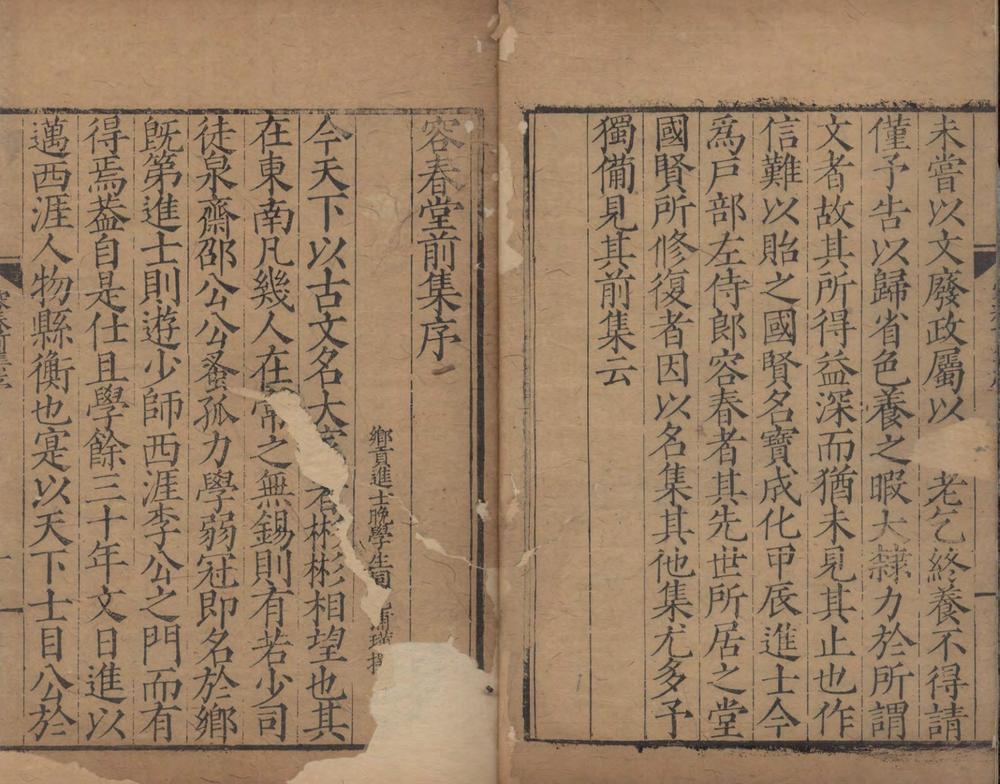 未嘗以文廢政屬以 老乞終養不得請
僅予告以歸省色養之暇大隸力於所謂
文者故其所得益深而猶未見其止也作
信難以貽之國賢名寶成化甲辰進士今
爲戶部左侍郎容春者其先世所居之堂
國賢所修復者因以名集其他集尤多予
獨備見其前集云
容春堂前集序
鄉貢進士晚學生同 浦瑾撰
今天下以古文名大 者彬彬相望也其
在東南凡幾人在常之無錫則有若少司
徒泉齋邵公公蚤孤力學弱冠即名於鄉
既第進士則遊少師西涯李公之門而有
得焉葢自是仕且學餘三十年文日進以
邁西涯人物縣衡也寔以天下士目公於